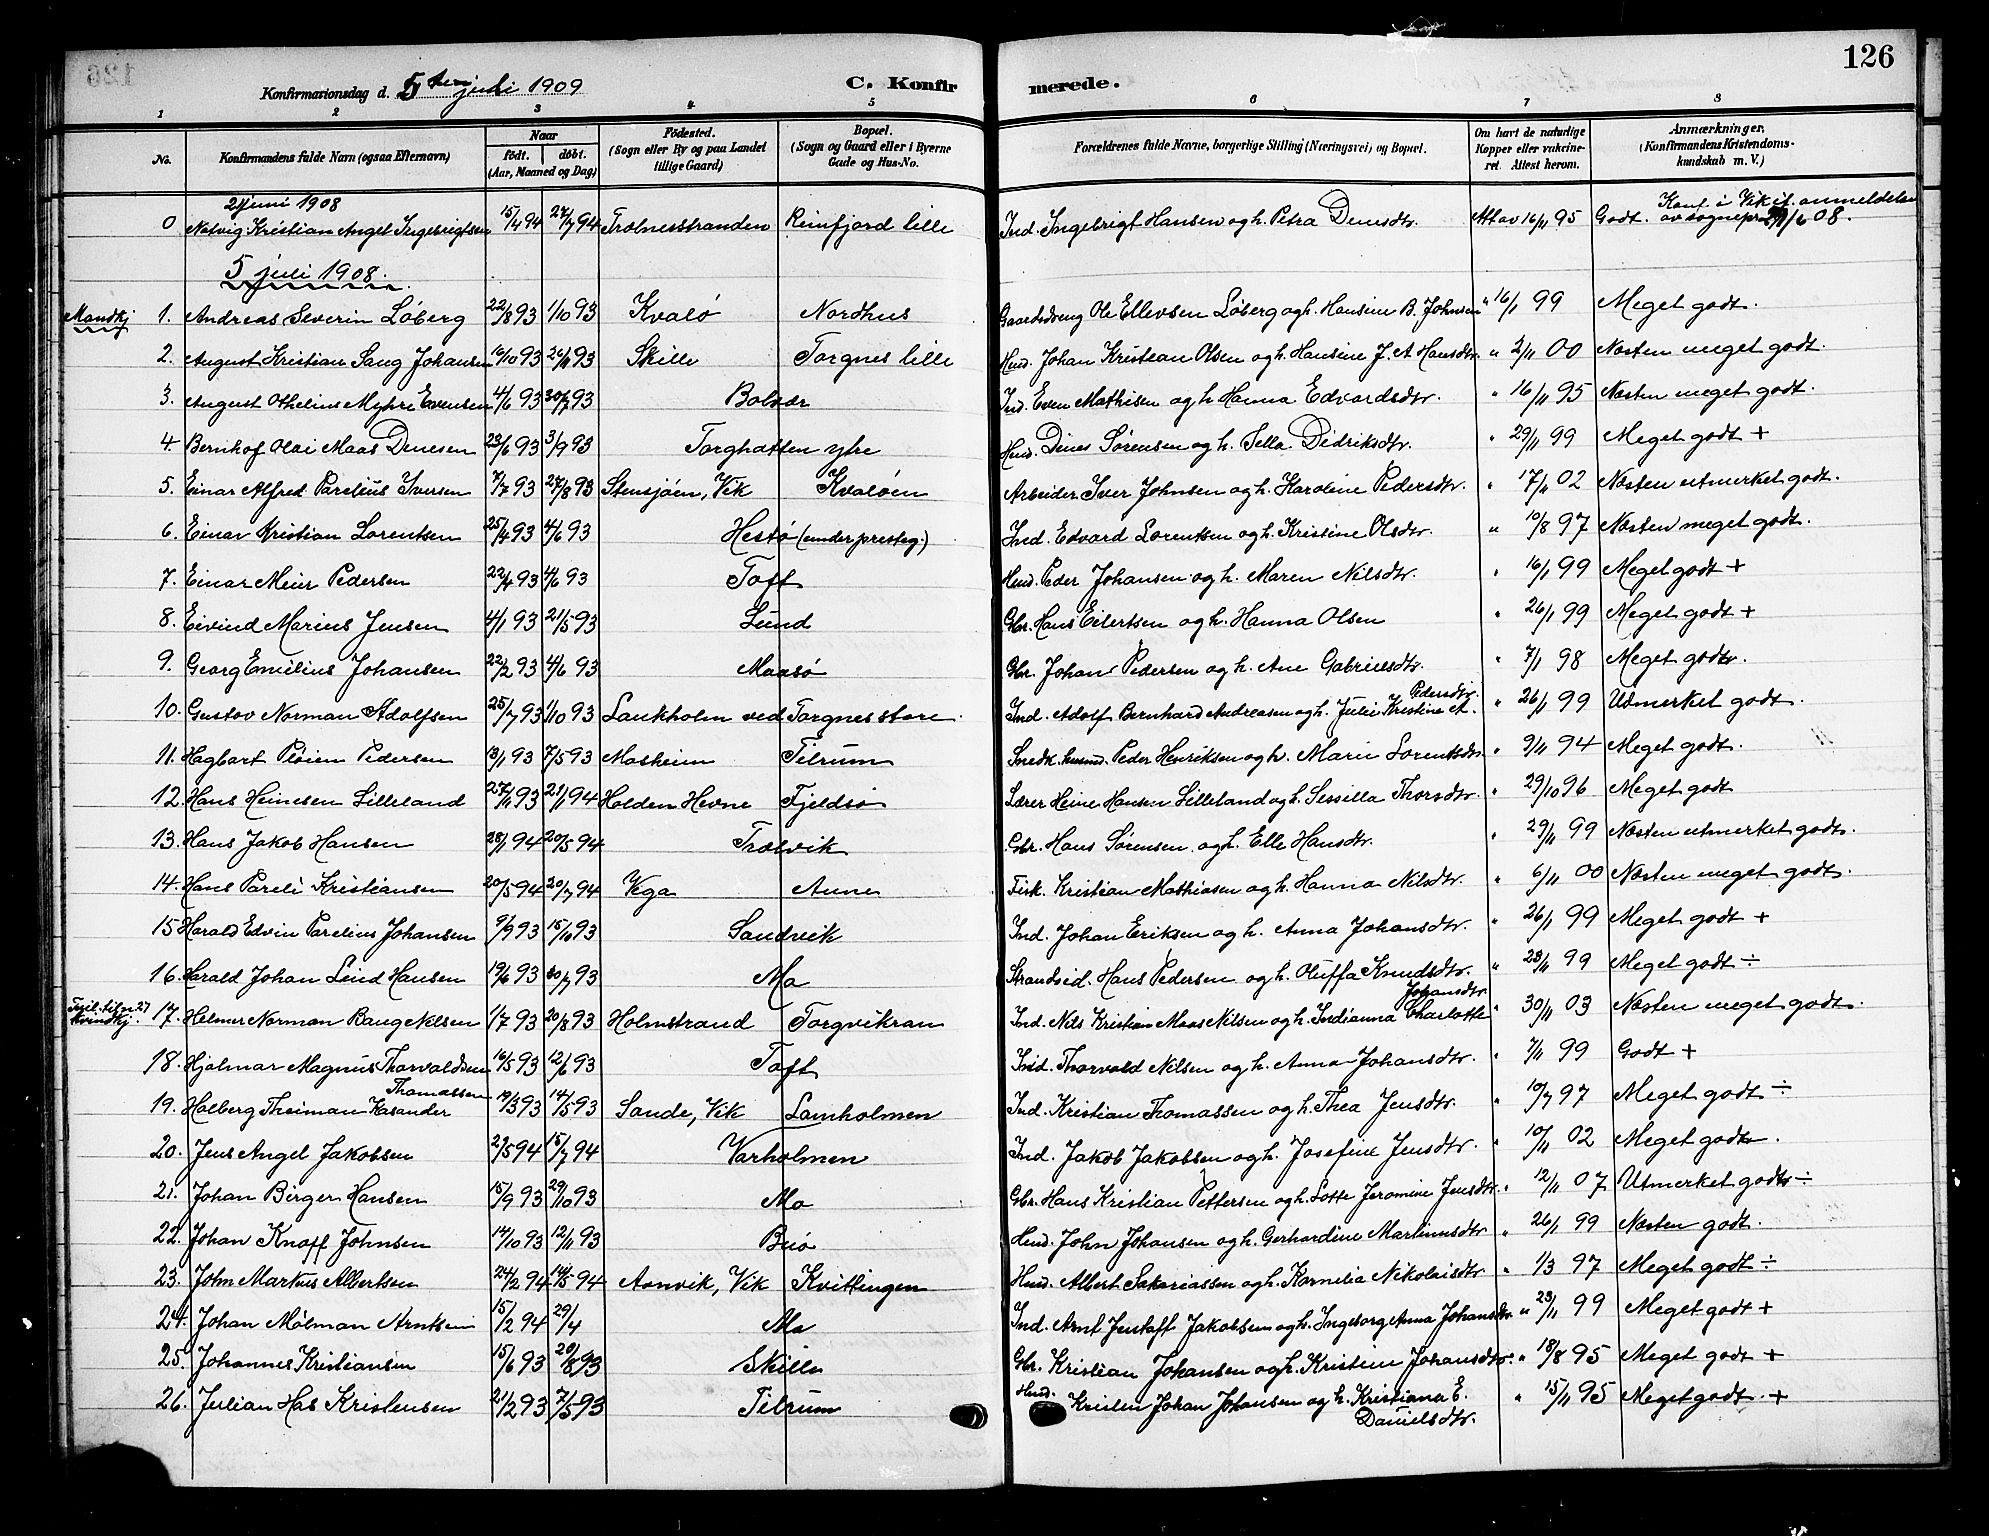 126
Konfirmationsdag d. 5te juli 1909 C. Konfirmerede.
1 2 3 4 5 6 7 8
No. Konfirmandens fulde Navn (ogsaa Efternavn) Naar født. døbt. (Aar, Maaned og Dag) Fødested. (Sogn eller By og paa Landet tillige Gaard) Bopæl. (Sogn og Gaard eller i Byerne Gade og Hus-No.) Forældrenes fulde Navne, borgerlige Stilling (Næringsvei) og Bopæl. Om havt de naturlige Kopper eller vakcineret. Attest herom. Anmærkninger. (Konfirmandens Kristendomskundskab m. V.)
2 juni 1908
0 Natvig Kristian Angel Ingebrigtsen 15/4 94 27/7 94 Trælnesstranden Reinfjord lille Ind. Ingebrigt Hansen og h. Petra Denisdtr. Att av 16/11 95 Godt. Konf. i Vik if. anmeldelse av sognepr. /6 08.
5 juli 1908.
Mandkj 1. Andreas Severin Løberg 22/8 93 1/10 93 Kvalø Nordhus Gaardsdreng Ole Ellevsen Løberg og h. Hansine B. Johnsen " 16/1 99 Meget godt.
2. August Kristian Saug Johansen 16/10 93 26/11 93 Skille Torgnes lille Husd. Johan Kristian Olsen og h. Hansine J. A Hansdtr " 2/11 00 Næsten meget godt.
3. August Othelius Myhre Evensen 4/6 93 30/7 93 Bolvær Ind. Even Mathisen og h Hanna Edvardsdtr. " 16/11 95 Næsten meget godt.
4. Bernhof Olai Maas Denesen 23/6 93 3/9 93 Torghatten ytre Husd. Dines Sørensen og h. Sella Didriksdtr. " 29/11 99 Meget godt +
5. Einar Alfred Parelius Iversen 7/7 93 27/8 93 Stensjøen, Vik Kvaløen Arbeider Iver Johnsen og h. Karoline Pedersdtr. " 17/11 02 Næsten utmerket godt.
6. Einar Kristian Lorentsen 25/4 93 4/6 93 Hestø (under presteg.) Ind. Edvard Lorentsen og h. Kristine Olsdtr. " 10/8 97 Næsten meget godt.
7. Einar Meier Pedersen 22/4 93 4/6 93 Toft Husd. Peder Johansen og h. Maren Nilsdtr. " 16/1 99 Meget godt +
8. Eivind Marius Jensen 4/1 93 21/5 93 Lund Gbr. Hans Eilertsen og h. Hanna Olsen " 26/1 99 Meget godt +
9. Georg Emilius Johansen 22/2 93 4/6 93 Maasø Gbr. Johan Pedersen og h. Ane Gabrielsdtr. " 7/1 98 Meget godt.
10. Gustav Norman Adolfsen 25/7 93 1/10 93 Laukholm ved Torgnes store. Ind. Adolf Bernhard Andreasen og h. Julie Kristine A. Pedersdtr. " 26/1 99 Udmerket godt.
11. Hagbart Pløien Pedersen 13/1 93 7/5 93 Mosheim Tilrum Snedk. husmd. Peder Henriksen og h. Marie Lorentsdtr. " 9/11 94 Meget godt.
12. Hans Heinesen Lilleland 27/11 93 21/1 94 Holden Hevne Fjeldsø Lærer Heine Hansen Lilleland og h. Sessilla Thorsdtr. " 29/10 96 Meget godt
13. Hans Jakob Hansen 28/1 94 20/5 94 Trælvik Gbr. Hans Sørensen og h. Elle Hansdtr. " 29/11 99 Næsten utmerket godt.
14. Hans Pareli Kristiansen 20/5 94 20/7 94 Vega Aune Fisk. Kristian Mathiasen og h. Hanna Nilsdtr. " 6/11 00 Næsten meget godt.
15 Harald Edvin Parelius Johansen 9/9 93 15/10 93 Sandvik Ind. Johan Eriksen og h. Anna Johansdtr. " 26/1 99 Meget godt +
16. Harald Johan Lind Hansen 19/6 93 30/7 93 Mo Strandsid. Hans Pedersen og h. Oluffa Knudsdtr. " 23/11 99 Meget godt ÷
Tvil. til no 27 Kvindkj. 17. Helmer Norman Baug Nilsen 1/7 93 20/8 93 Holmstrand Torgvikran Ind. Nils Kristian Maas Nilsen og h. Indianna Charlotte Johansdtr. " 30/11 03 Næsten meget godt.
18. Hjalmar Magnus Thorvaldsen 16/5 93 12/6 93 Toft Ind. Thorvald Nilsen og h. Anna Johansdtr. " 7/11 99 Godt +
19. Holberg Theiman Kasander Thomassen 19/3 93 14/5 93 Sande, Vik Lamholmen Ind. Kristian Thomassen og h. Thea Jensdtr. " 10/7 97 Meget godt ÷
20. Jens Angel Jakobsen 2/5 94 15/7 94 Varholmen Ind. Jakob Jakobsen og h. Josefine Jensdtr. " 10/11 02 Meget godt.
21. Johan Birger Hansen 15/9 93 29/10 93 Mo Gbr. Hans Kristian Pettersen og h. Lotte Jeromine Jensdtr. " 12/11 07 Utmerket godt ÷
22. Johan Knoff Johnsen 14/10 93 12/11 93 Buø Husd. John Johansen og h. Gerhardine Martinusdtr " 26/1 99 Næsten godt.
23. John Martius Albertsen 24/2 94 14/5 94 Aanvik, Vik Kvittingen Husd. Albert Sakariassen og h. Kornelia Nikolaisdtr " 1/3 97 Meget godt ÷
24. Johan Mølman Arntsen 15/2 94 29/4 Mo Ind. Arnt Jentoft Jakobsen og h. Ingeborg Anna Johansdtr. " 23/11 99 Meget godt +
25. Johannes Kristiansen 15/6 93 20/8 93 Skille Gbr. Kristian Johansen og h. Kristine Johansdtr. " 18/8 95 Meget godt +
26. Julian Has Kristensen 21/2 93 7/5 93 Tilrum Husd. Kristen Johan Johansen og h. Kristiana E. Danielsdtr. " 15/11 95 Meget godt. +